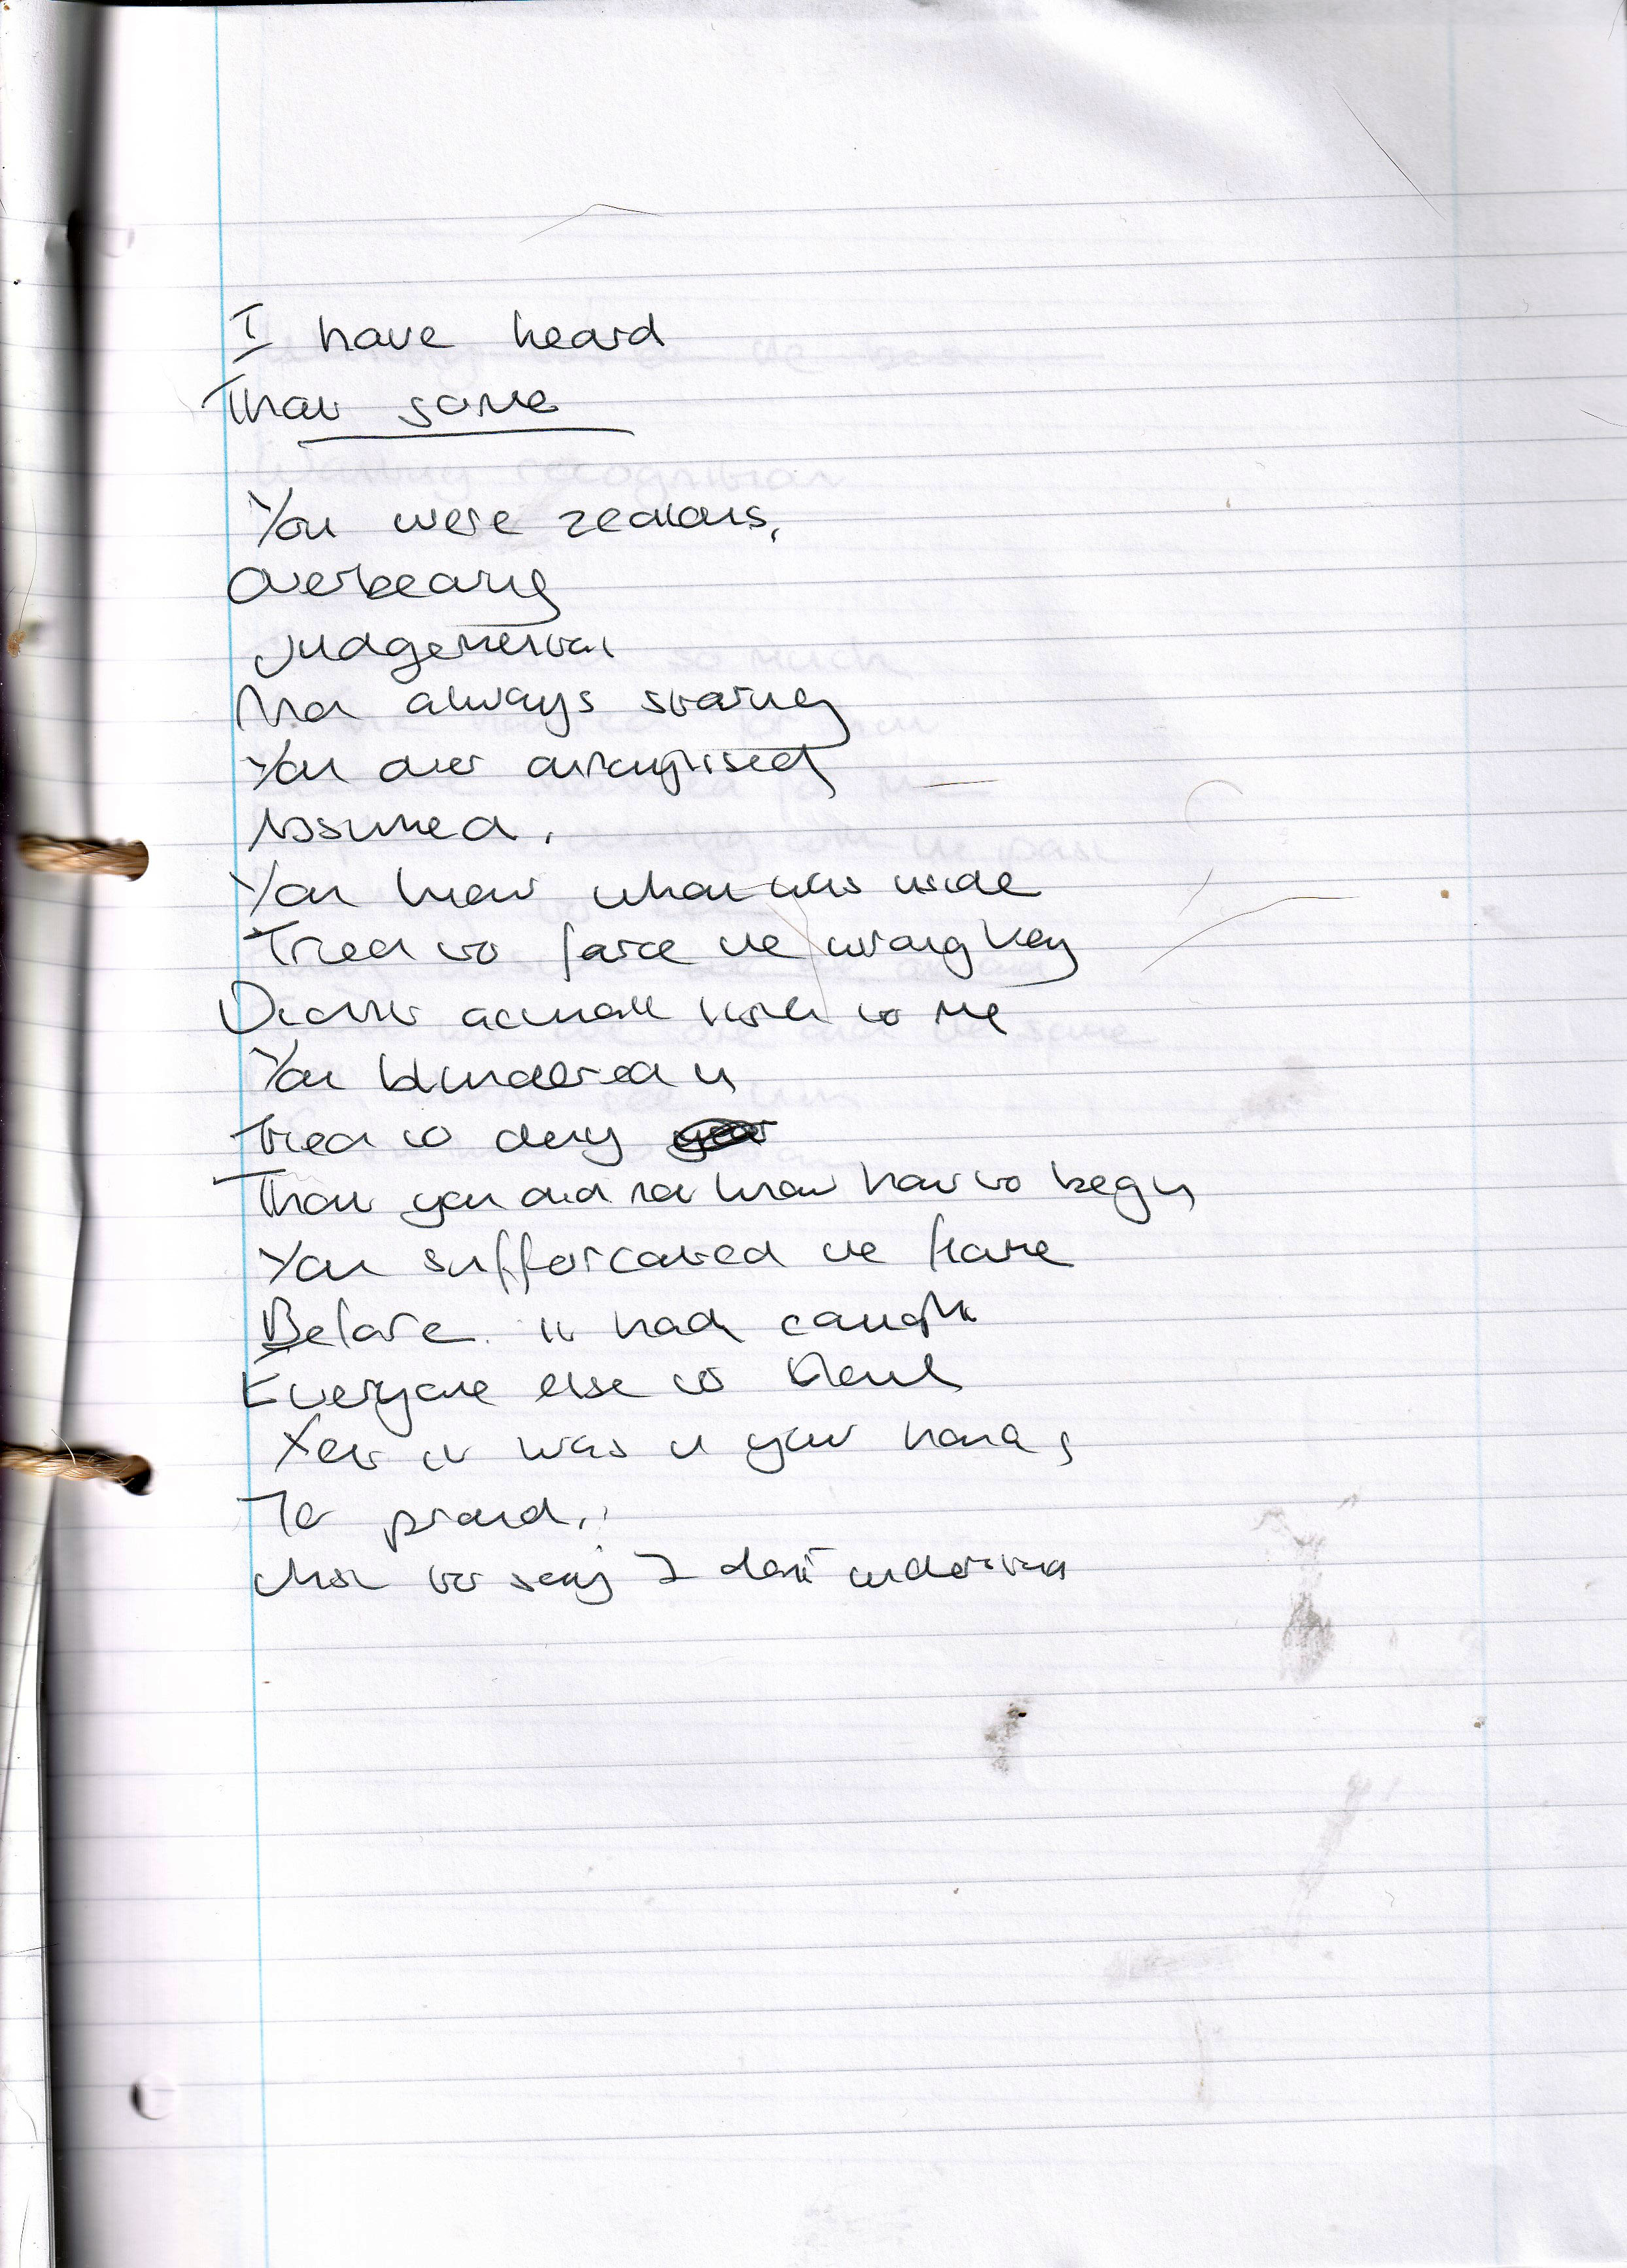 I have heard
That some
You were zealous,
Overbearing
Judgemental
Not always staring
You over
Assumed.
You knew what was inside
Tried to force the wrong key
Didn't to me
You blundered in
Tried to deny
That you did not know how to begin
You sufforcated the flame
Before it had caught
Everyone else to blame
Yet it was in your hand,
To proud,
to say I don't understand